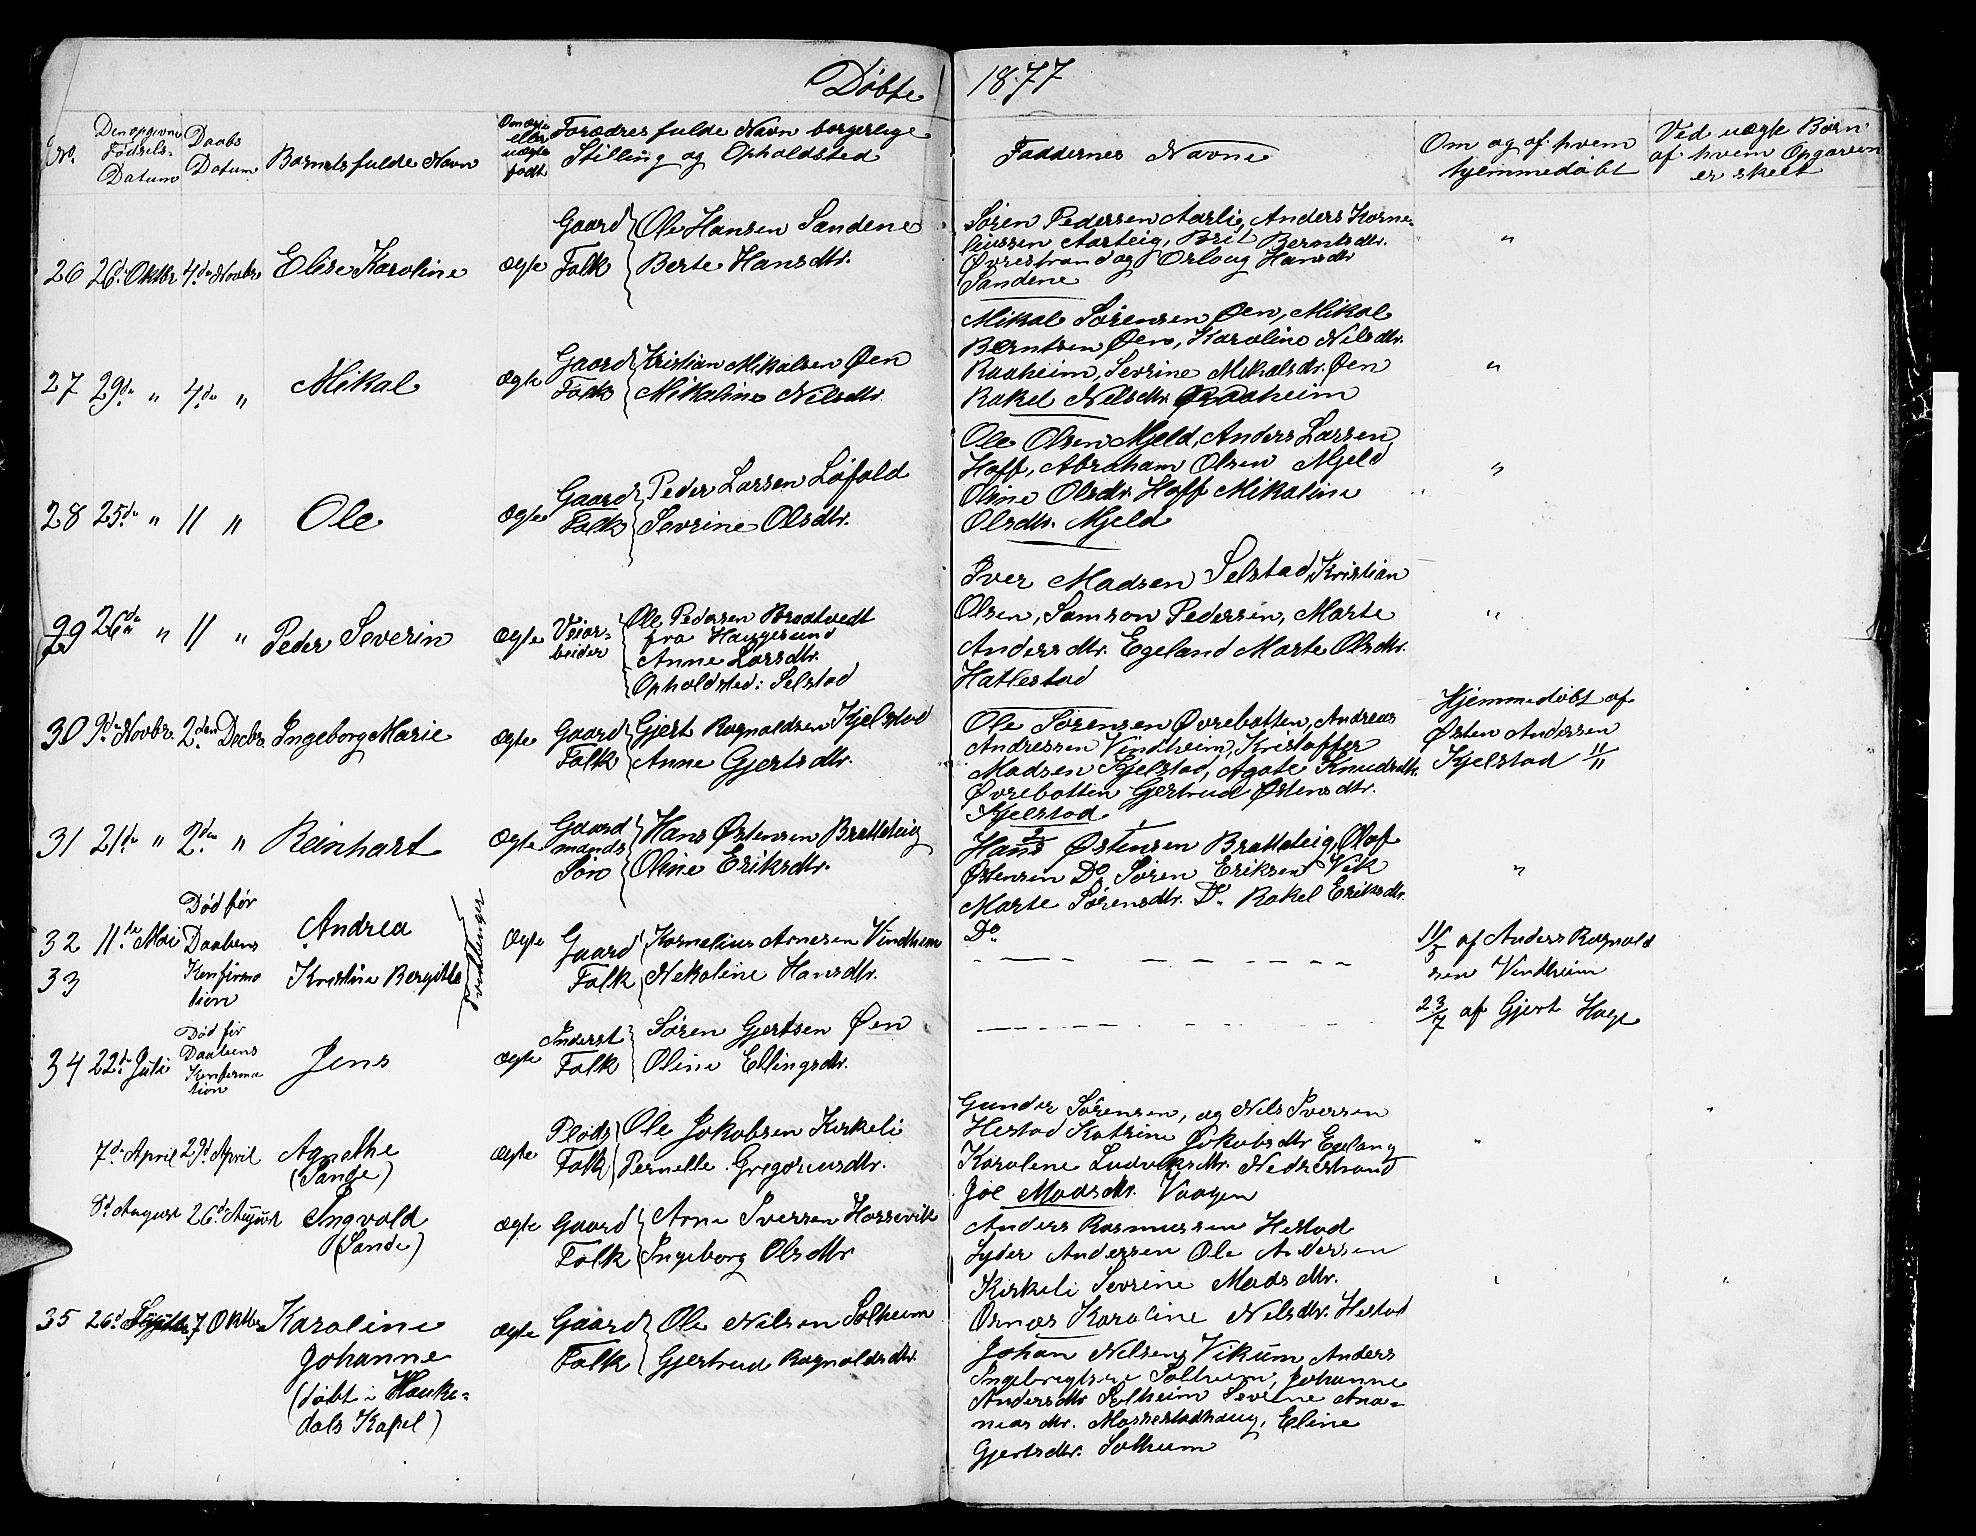 Døbte 1877
No.
Den opgivne
Fødsels-
Datum
Daabs
Datum
Barnets fulde Navn
Om ægte
eller
uægte
født
Forædres fulde Navn borgerlige
Stilling og Opholdsted
Faddernes Navne
Om og af hvem
hjemmedøbt
Ved uægte Børn
af hvem Opgaven
er skeet
26 26d. Oktbr 4de Novbr Elise Karoline ægte
Gaard
Folk
Ole Hansen Sandene
Berte Hansdtr.
Søren Pedersen Aarli, Anders Korne-
liussen Aarteig, Brit Berntsdtr.
Øvrestrand og Orloug Hansdtr
Sandene
"
27 29de " 4de " Mikal Ægte
Gaard
Folk
Kristian Mikalsen Øen
Mikaline Nilsdtr.
Mikal Sørensen Øen, Mikal
Berntsen Øen, Karoline Nilsdtr.
Raaheim, Sevrine Mikalsdtr. Øen
Rakel Nilsdtr. Raaheim
"
28 25de " 11 " Ole Ægte
Gaard
Folk
Peder Larsen Løfald
Sevrine Olsdtr.
Ole Olsen Mjeld, Anders Larsen
Hoff, Abraham Olsen Mjeld
Oline Olsdtr. Hoff Mikaline
Olsdtr. Mjeld
"
29 26de " 11 " Peder Severin Ægte
Veiar-
beider
Ole Pedersen Braatvedt
fra Haugesund
Anne Larsdtr.
Opholdsted: Selstad
Iver Madsen Selstad, Kristian
Olsen, Samson Pedersen, Marte
Andersdtr. Egeland Marte Olsdtr.
Hatlestad
"
30 9d. Novbr. 2den Decbr. Ingeborg Marie Ægte
Gaard
Folk
Gjert Ragnaldsen Kjelstad
Anne Gjertsdtr.
Ole Sørensen Øvrebotten, Andreas
Andressen Vindheim, Kristoffer
Madsen Kjelstad, Agate Knudsdtr.
Øvrebotten Gjertrud Østensdtr.
Kjelstad
Hjemmedøbt af
Østen Andersen
Kjelstad 11/11
31 21de " 2den " Reinhart Ægte
Gaard
mands
Søn
Hans Østensen Bratteteig
Oline Eriksdtr.
Hans Østensen Bratteteig, Olaf
Østensen Do Søren Eriksen Vik
Marte Sørensdtr. Do. Rakel Eriksdtr.
Do.
"
32 11te Mai
33
Død før
Daabens
Konfirma
tion
Andrea
Kristine Bergitte
Tvillinger
Ægte
Gaard
Folk
Kornelius Arnesen Vindheim
Nekoline Hansdtr.
11/5 af Anders Ragnald
sen Vindheim
34 22de Juli
Død før
Daabens
Konfirma
tion
Jens
Ægte
Inderst
Folk
Søren Gjertsen Øen
Oline Ellingsdtr.
23/7 af Gjert Hage
7de April 29d April Agnethe
(Sande)
ægte
Plads
Folk
Ole Jakobsen Kirkeli
Pernelle Gregoriusdtr.
Gunder Sørensen, og Nils Iversen
Hestad Katrine Jakobsdtr Egeland
Karolene Ludviksdtr. Nedrestrand
Joe Madsdtr. Vaagen
"
8d August 26d. August Ingvald
(Sande)
ægte
Gaard
Folk
Arne Iversen Horsevik
Ingeborg Olsdtr
Anders Rasmussen Hestad
Lyder Andersen Ole Andersen
Kirkeli Sevrine Madsdtr.
Osnæs Karoline Nilsdtr. Hestad
35 26d. 7 Oktbr Karoline
Johanne
(døbt i Hauke-
dals Kapel)
ægte
Gaard
Folk
Ole Nilsen Solheim
Gjertrud Ragnaldsdtr.
Johan Nilsen Vikum Anders
Ingebrigtsen Solheim, Johanne
Andersdtr Solheim Sevrine Ana-
niasdtr. Massestadhaug, Eline
Gjertsdtr. Solheim